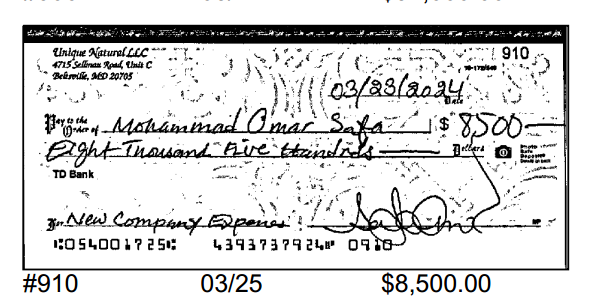 Unique Natural LLC
4715 Sellman Road, Unit C
Beltsville, MD 20705
910
03/23/2024
Date
Pay to the
Order of Mohammad Omar Safa $ 8,500
Eight Thousand Five Hundrds Dollars
Photo
Safe
Deposit
TD Bank
For New Company Expense MP
⑆054001725⑆ 4393737924⑈ 0910
#910 03/25 $8,500.00